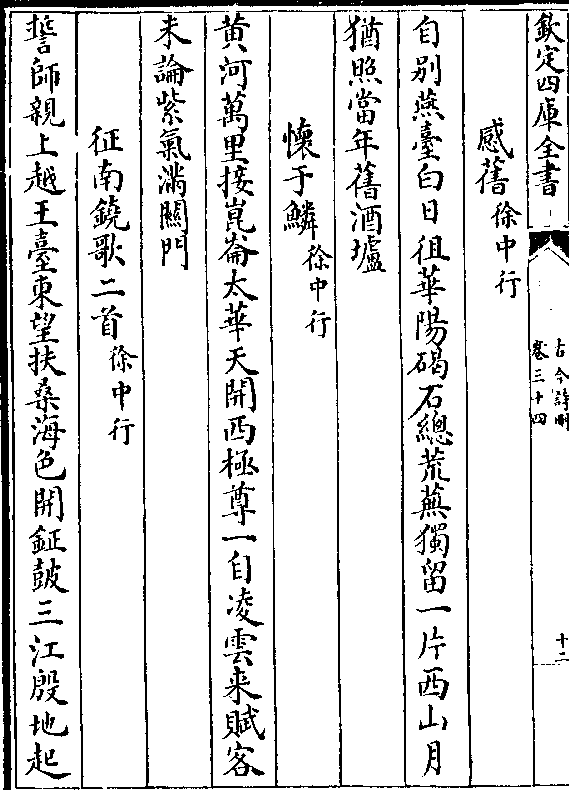 欽定四庫全書
古今詩刪
卷三十四
十二
感舊徐中行
自别燕臺白日徂華陽碣石總荒蕪獨留一片西山月
猶照當年舊酒壚
懷于鱗徐中行
黄河萬里接崑崙太華天開西極尊一自凌雲来賦客
未論紫氣滿關門
征南鐃歌二首徐中行
誓師親上越王臺東望扶桑海色開鉦鼓三江殷地起